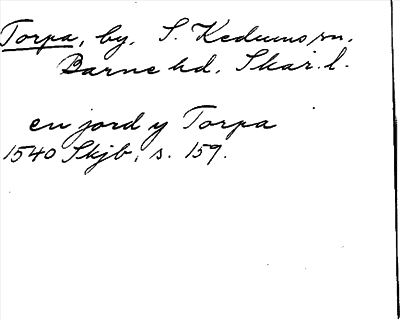 Torpa, by, S. Kedums sn.
Barne hd. Skar. l.
en jord y Torpa
1540 Skjb, s. 159.